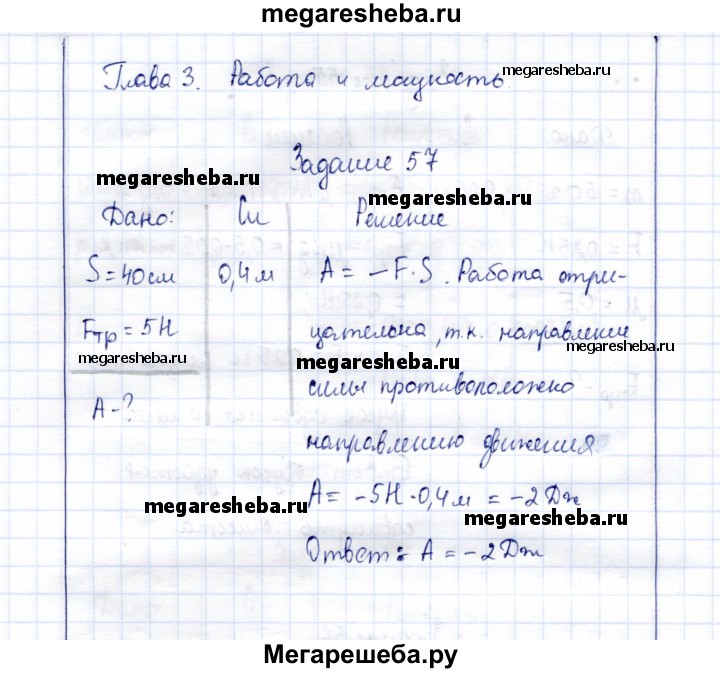 megaresheba.ru
Глава 3. Работа и мощность
megaresheba.ru
Задание 57
megaresheba.ru
megaresheba.ru
Дано: Си Решение
S = 40 см 0,4 м A = -F·S. Работа отри-
Fтр = 5Н цательна, т.к. направление
megaresheba.ru
megaresheba.ru
megaresheba.ru
A - ? силы противоположно
направлению движения
A = -5Н·0,4 м = -2 Дж
megaresheba.ru
megaresheba.ru
Ответ: A = -2 Дж
Мегарешеба.ру